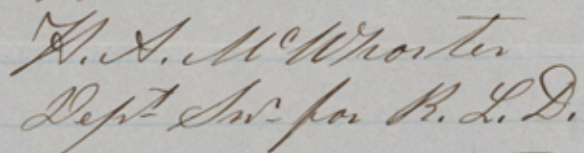 H. A. McWhorter
Dept Sur for R. L. D.